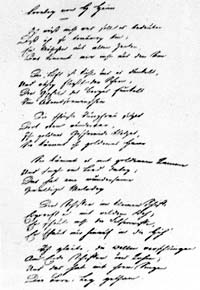 Ich weiß nicht was soll es bedeuten
Daß ich so traurig bin,
Ein Mährchen aus alten Zeiten
Das kommt mir nicht aus dem Sinn
Die Luft ist kühl und es dunkelt
Und ruhig fließt der Rhein,
Der Gipfel des Berges funkelt
Im Abendsonnenschein
Die schönste Jungfrau sitzet
Dort oben wunderbar,
Ihr goldnes Geschmeide blitzet,
Sie kämmt ihr goldenes Haar
Sie kämmt es mit goldenem Kamme
Und singt ein Lied dabey,
Das hat eine wundersame
Gewaltige Melodey
Den Schiffer im kleinen Schiffe
Ergreift es mit wildem Weh,
Er schaut nicht die Felsenriffe,
Er schaut nur hinauf in die Höh'
Ich glaube, die Wellen verschlingen
Am Ende Schiffer und Kahn,
Und das hat mit ihrem Singen
Die Lore-Ley gethan